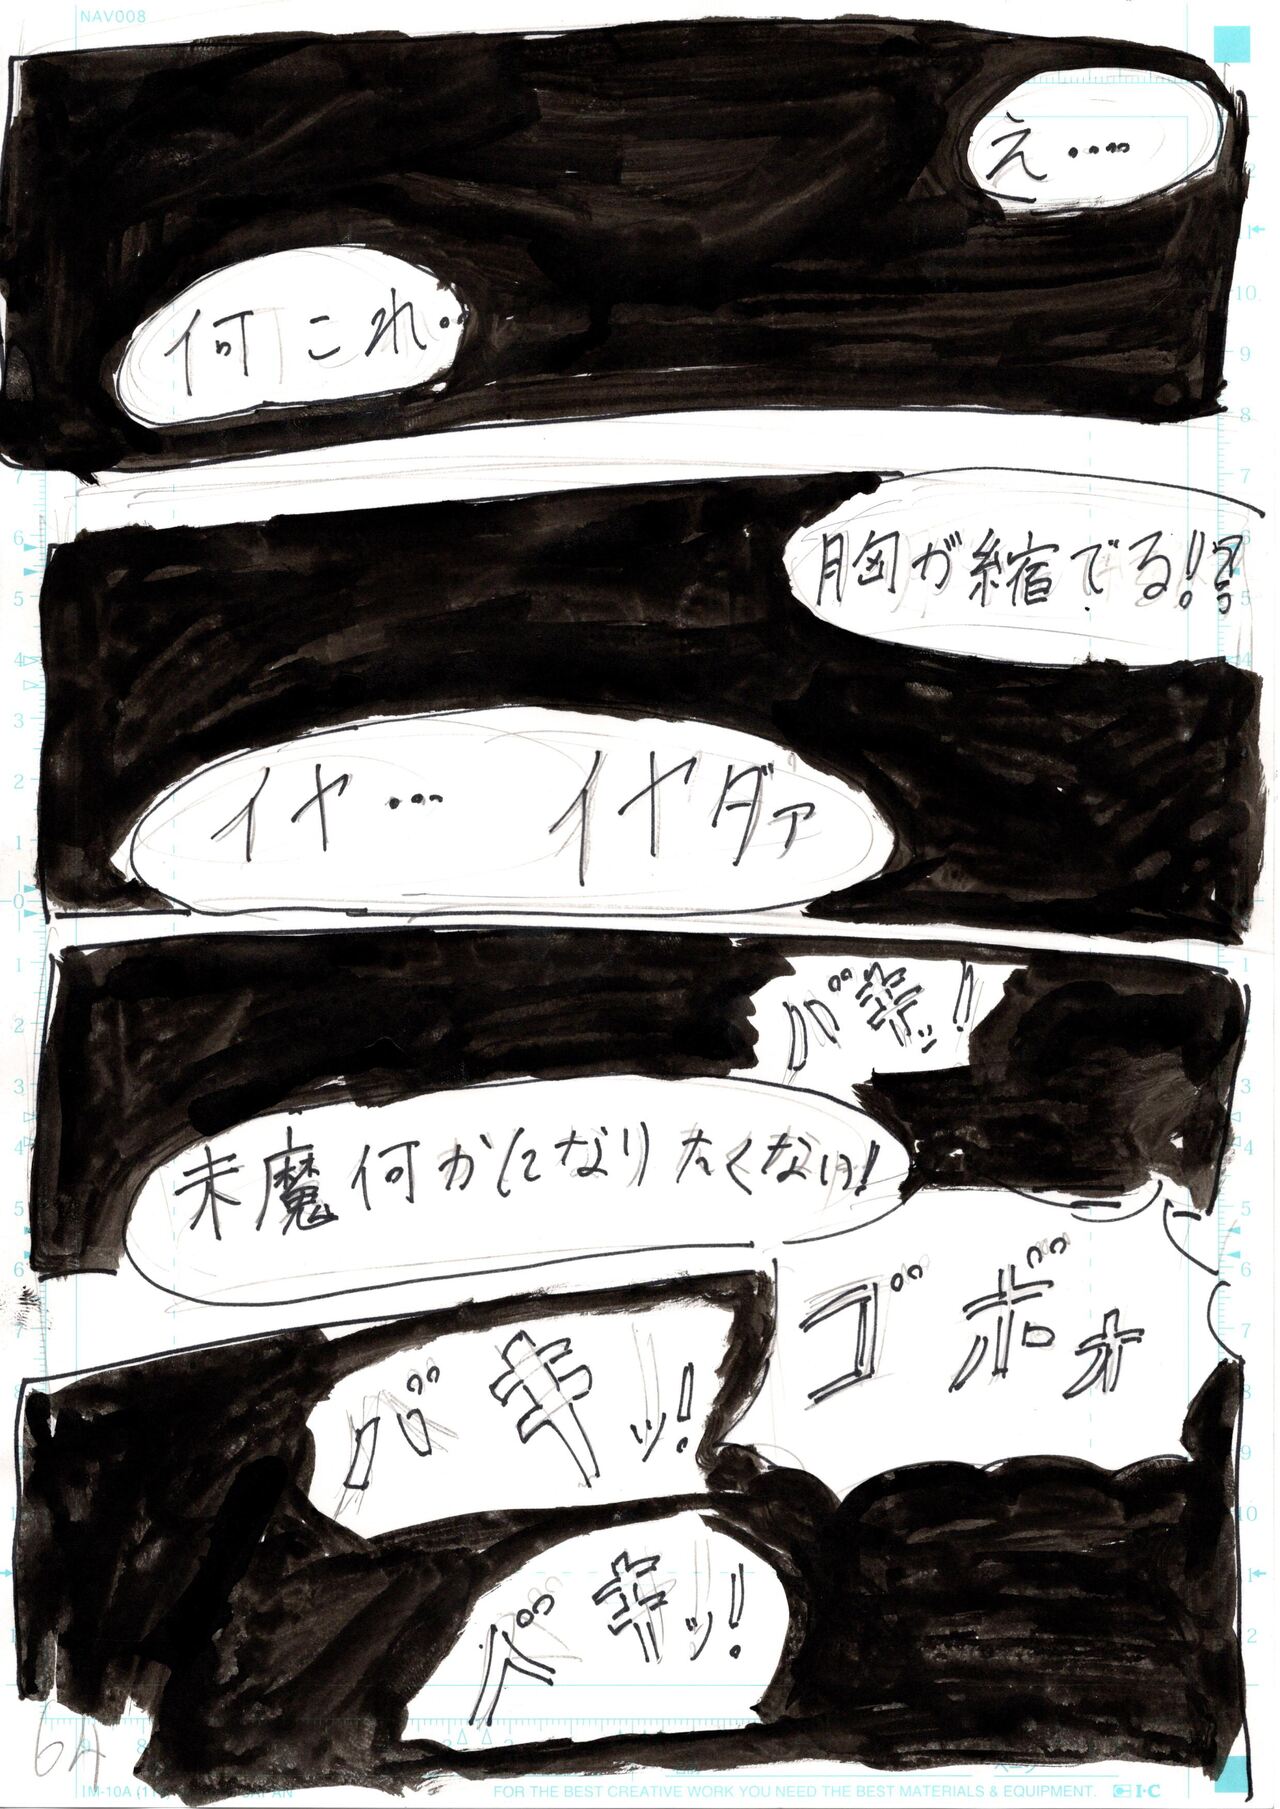 NAV008
え‥‥
何これ‥
胸が縮でる!?
イヤ‥‥ イヤダァ
バキッ!
未魔何かになりたくない!
ゴボォ
バキッ!
ベキッ!
64
FOR THE BEST CREATIVE WORK YOU NEED THE BEST MATERIALS & EQUIPMENT. I·C